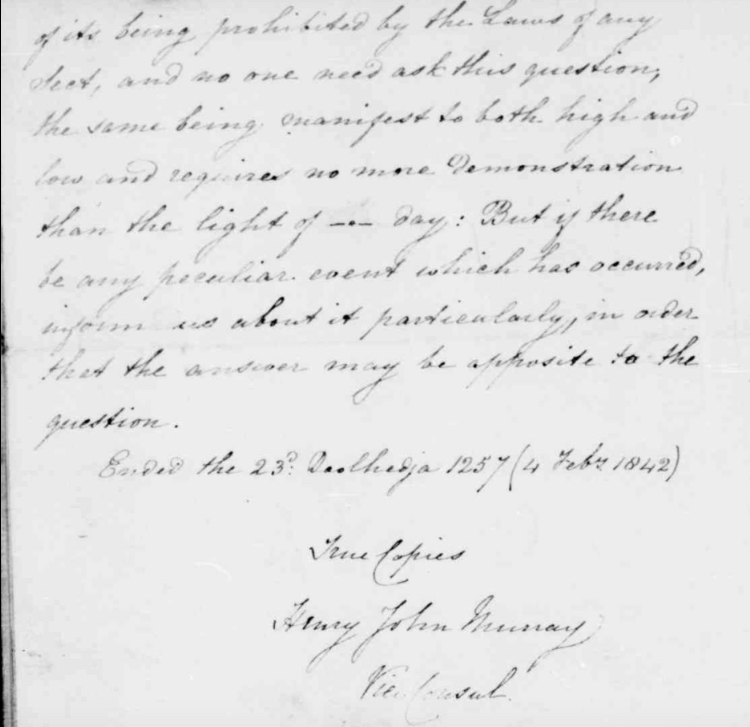 of its being prohibited by the Laws of any
Sect, and no one need ask this question,
the same being manifest to both high and
low and requires no more Demonstration
than the light of —— day: But if there
be any peculiar event which has occurred,
inform us about it particularly, in order
that the answer may be apposite to the
question.
Ended the 23d: Zoolhedja 1257 (4 Feby 1842)
True Copies
Henry John Murray
Vice Consul.